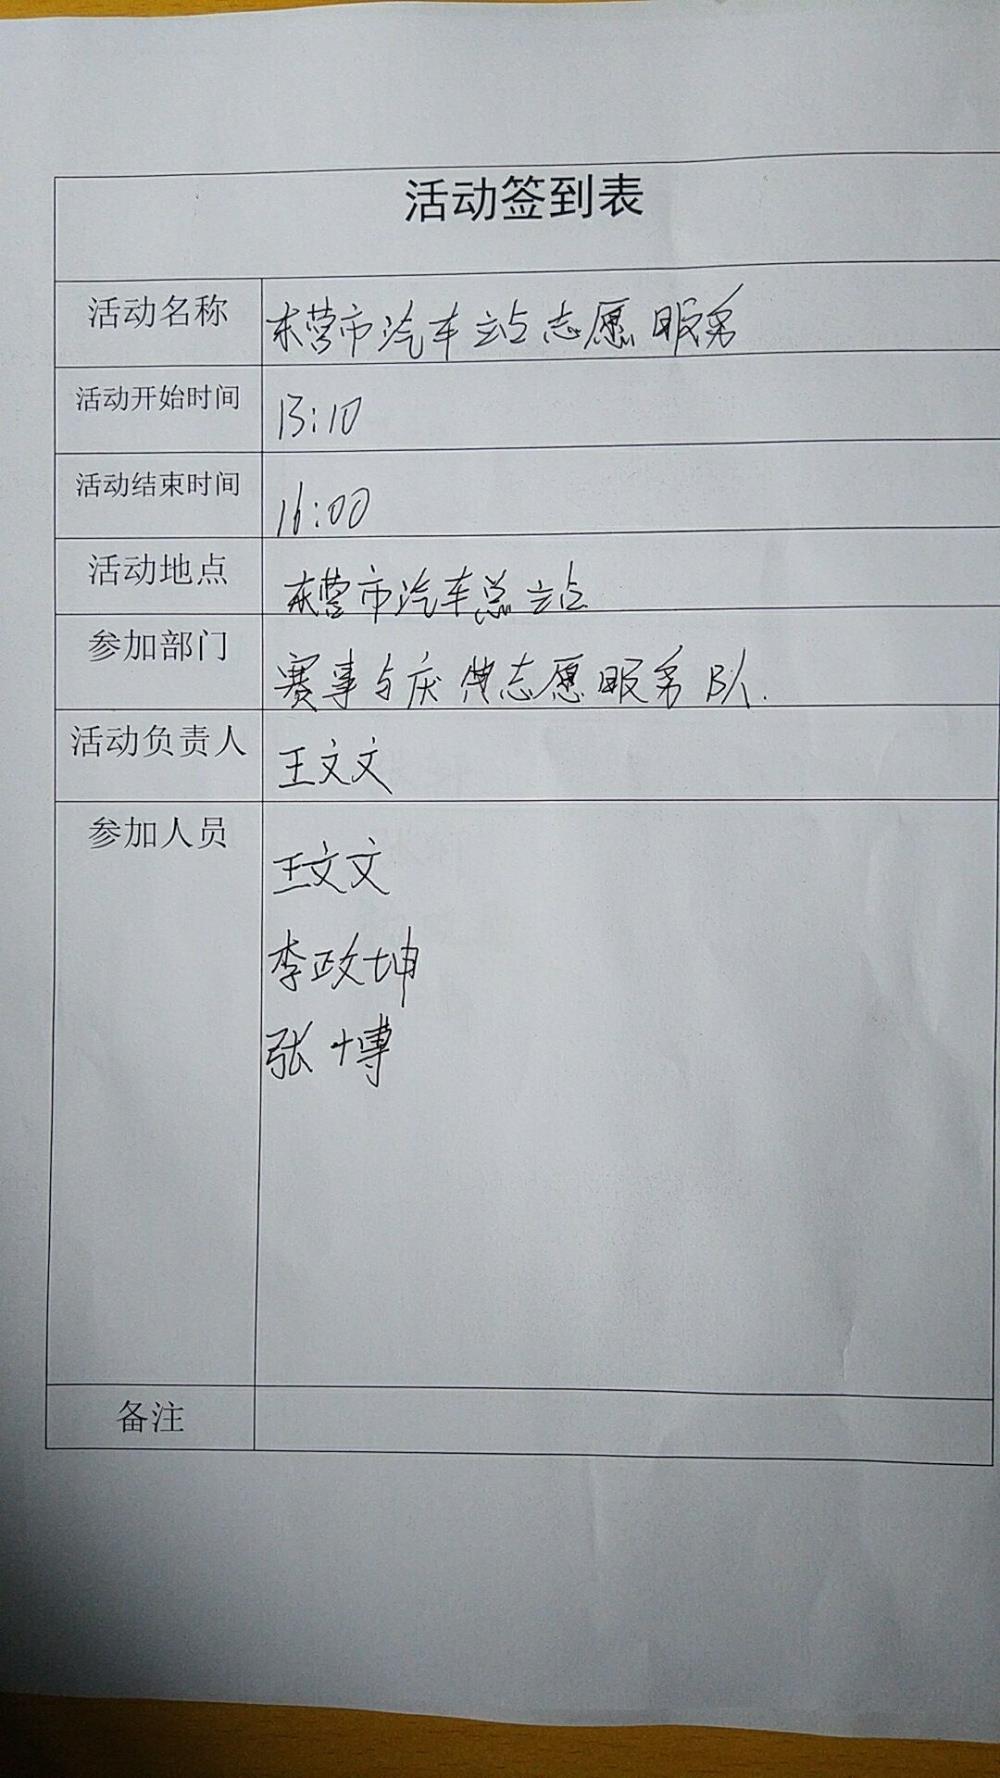 活动签到表
活动名称 东营市汽车站志愿服务
活动开始时间 13:10
活动结束时间 16:00
活动地点 东营市汽车总站
参加部门 赛事与庆典志愿服务队.
活动负责人 王文文
参加人员 王文文
李政坤
张博
备注